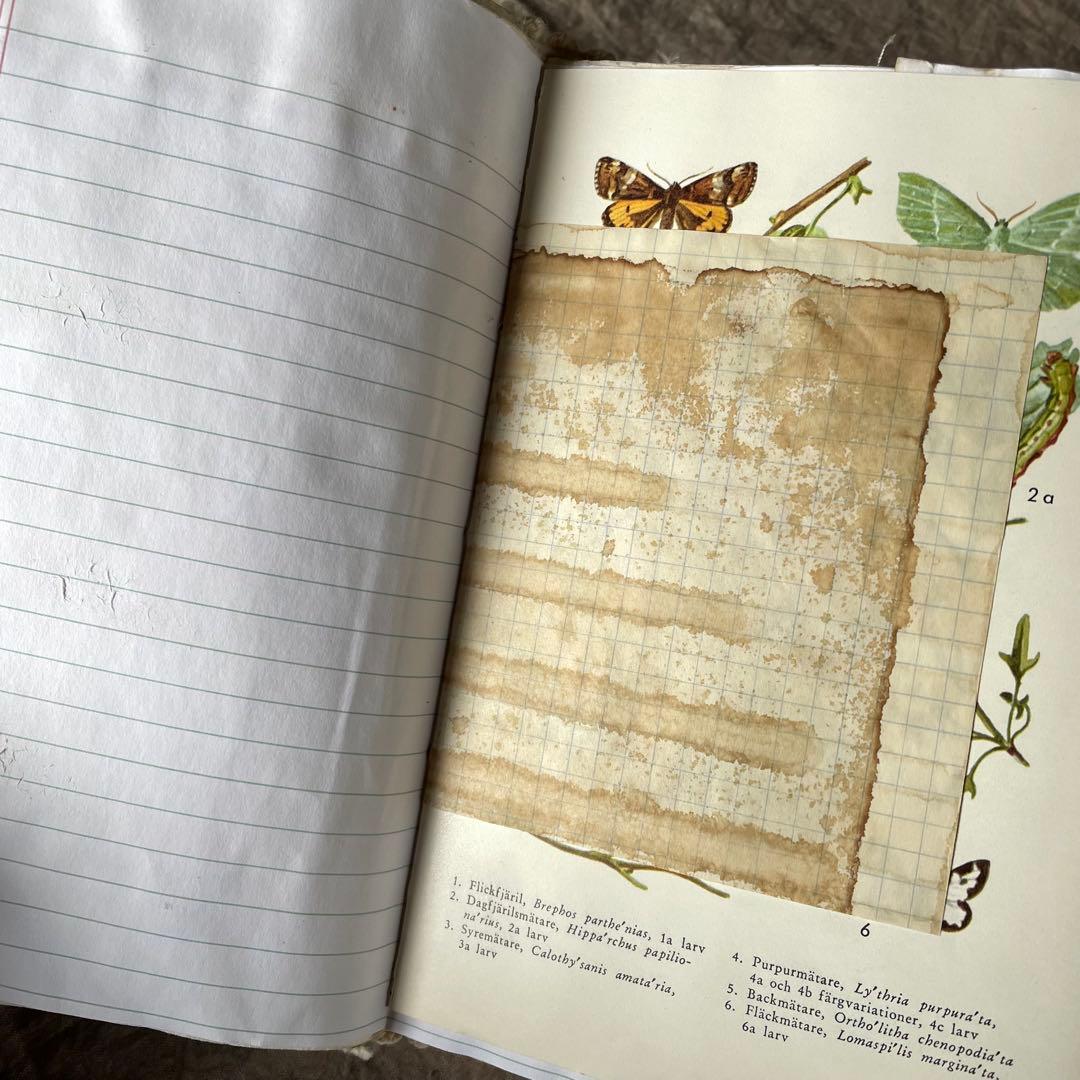 2 a
6
1. Flickfjäril, Brephos parthe′nias, 1a larv
2. Dagfjärilsmätare, Hippa′rchus papilio-
na′rius, 2a larv
3. Syremätare, Calothy′sanis amata′ria,
3a larv
4. Purpurmätare, Ly′thria purpura′ta,
4a och 4b färgvariationer, 4c larv
5. Backmätare, Ortho′litha chenopodia′ta
6. Fläckmätare, Lomaspi′lis margina′ta,
6a larv